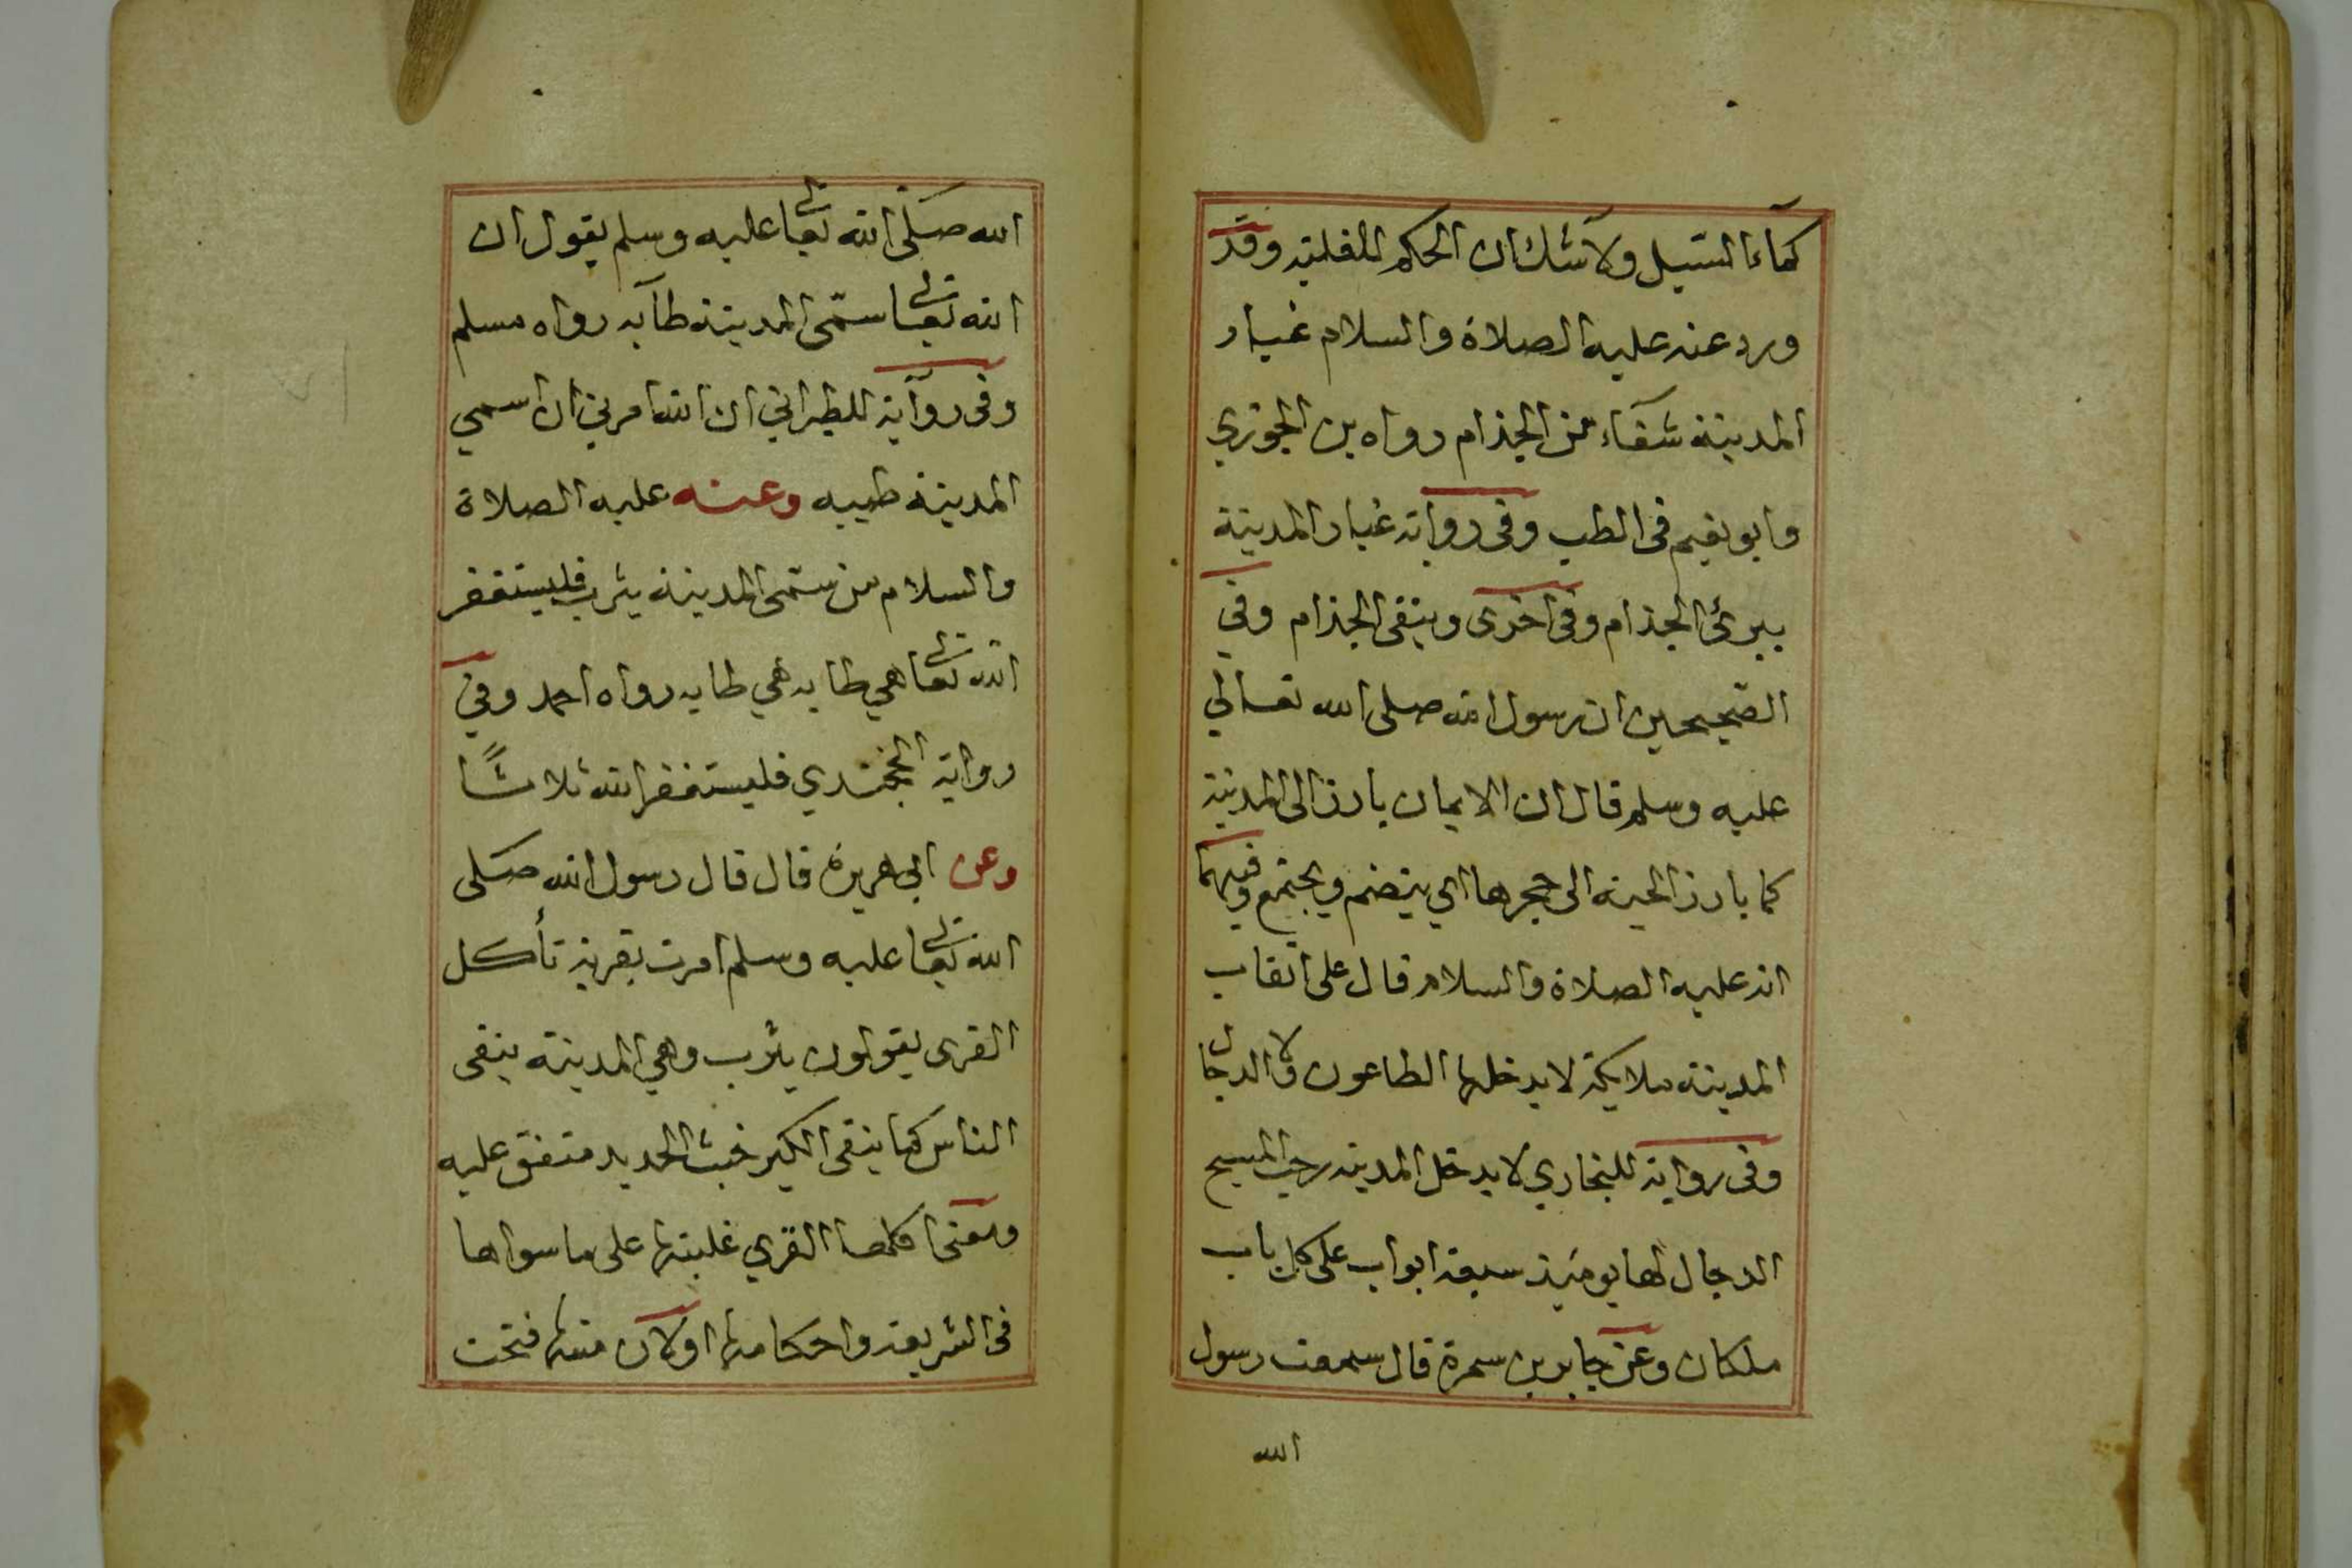 كماء السيل ولا شك ان الحكم للغلبة وقد
ورد عنه عليه الصلاة والسلام غبار
المدينة شفاء من الجذام رواه بن الجوزي
وابو نعيم فى الطب وفى رواية غبار المدينة
يبرئ الجذام وفى اخرى وينقى الجذام وفي
الصحيحين ان رسول الله صلى الله تعالي
عليه وسلم قال ان الايمان يارز الى المدينة
كما يارز الحية الى حجرها اي ينضم ويجتمع وفيهما
انه عليه الصلاة والسلام قال على انقاب
المدينة ملايكة لا يدخلها الطاعون ولا الدجال
وفى رواية للبخاري لا يدخل المدينة رعب المسيح
الدجال لها يومئذ سبعة ابواب على كل باب
ملكان وعن جابر بن سمرة قال سمعت رسول
الله
الله صلى الله تعالى عليه وسلم يقول ان
الله تعالى سمى المدينة طابه رواه مسلم
وفى رواية للطبراني ان الله امرني ان اسمي
المدينة طيبه وعنه عليه الصلاة
والسلام من سمى المدينة يثرب فليستغفر
الله تعالى هي طابه هي طابه رواه احمد وفي
رواية الجندي فليستغفر الله ثلاثًا
وعن ابي هريرة قال قال رسول الله صلى
الله تعالى عليه وسلم امرت بقرية تأكل
القرى يقولون يثرب وهي المدينة ينقى
الناس كما ينقى الكير خبث الحديد متفق عليه
ومعنى اكلها القري غلبتها على ما سواها
فى الشريعة واحكامها اولان منها فتحت